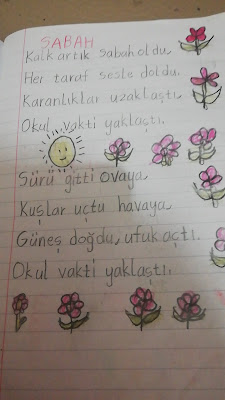 SABAH
Kalk artık sabah oldu,
Her taraf sesle doldu.
Karanlıklar uzaklaştı,
Okul vakti yaklaştı.
Sürü gitti ovaya,
Kuşlar uçtu havaya,
Güneş doğdu, ufuk açtı.
Okul vakti yaklaştı.